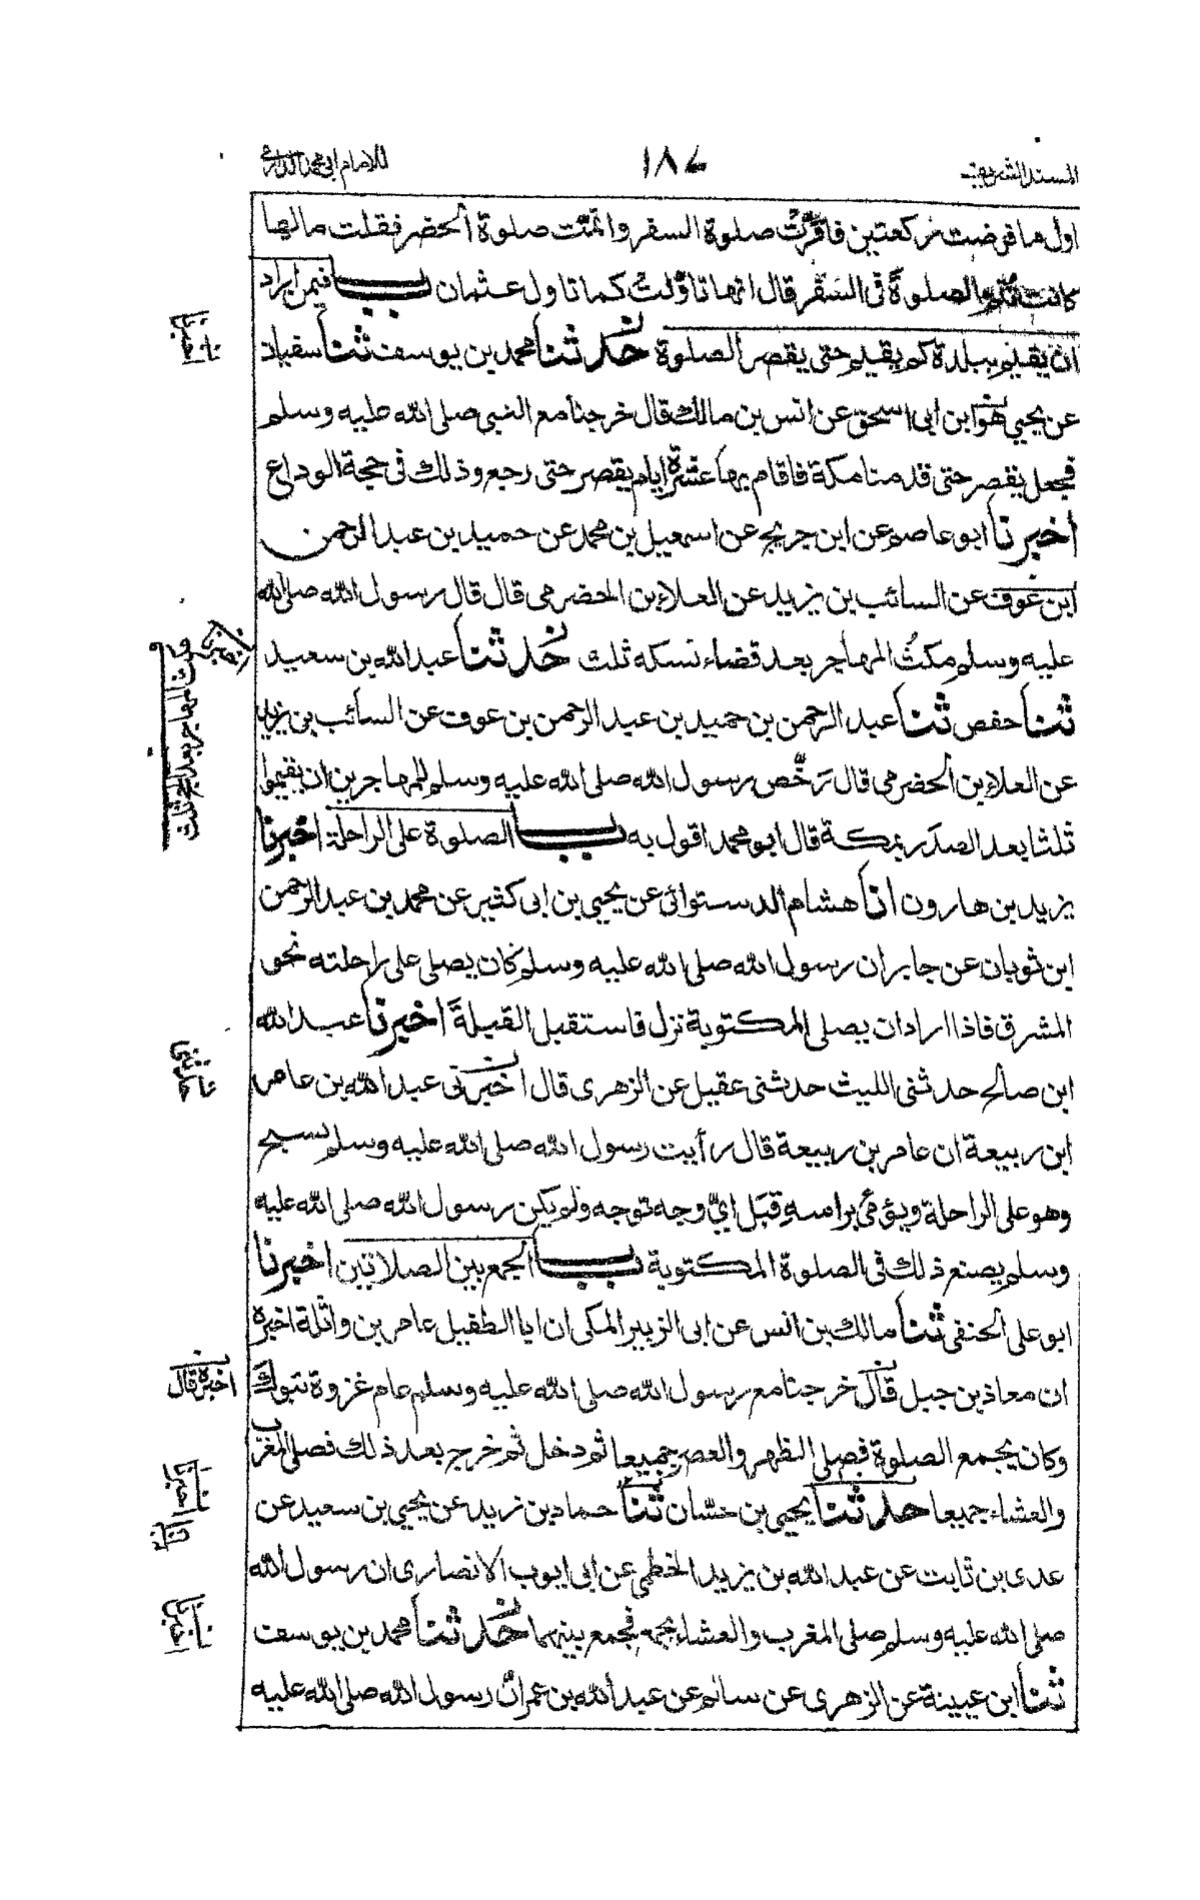 المسند الشريف
١٨٧
للامام ابى محمد الدارمى
اول ما فرضت ركعتين فاقرّت صلوة السفر واتمّت صلوة الحضر فقلت ما لها
كانت تتم الصلوة فى السفر قال انها تاوّلت كما تاول عثمان باب فيمن اراد
ان يقيم ببلدة كم يقيم حتى يقصر الصلوة حدثنا محمد بن يوسف ثنا سفيان
عن يحيى هو ابن ابى اسحق عن انس بن مالك قال خرجنا مع النبى صلى الله عليه وسلم
فجعل يقصر حتى قدمنا مكة فاقام بها عشرة ايام يقصر حتى رجع وذلك فى حجة الوداع
اخبرنا ابو عاصم عن ابن جريج عن اسمعيل بن محمد عن حميد بن عبد الرحمن
ابن عوف عن السائب بن يزيد عن العلاء بن الحضرمى قال قال رسول الله صلى الله
عليه وسلم مكثُ المهاجر بعد قضاء نسكه ثلث حدثنا عبد الله بن سعيد
ثنا حفص ثنا عبد الرحمن بن حميد بن عبد الرحمن بن عوف عن السائب بن يزيد
عن العلاء بن الحضرمى قال رَخَّص رسول الله صلى الله عليه وسلم للمهاجرين ان يقيموا
ثلثا بعد الصدَر بمكة قال ابو محمد اقول به باب الصلوة على الراحلة اخبرنا
يزيد بن هارون انا هشام الدستوائى عن يحيى بن ابى كثير عن محمد بن عبد الرحمن
ابن ثوبان عن جابر ان رسول الله صلى الله عليه وسلم كان يصلى على راحلته نحو
المشرق فاذا اراد ان يصلى المكتوبة نزل فاستقبل القبلةَ اخبرنا عبد الله
ابن صالح حدثنى الليث حدثنى عقيل عن الزهرى قال اخبرنى عبد الله بن عامر
ابن ربيعة ان عامر بن ربيعة قال رأيت رسول الله صلى الله عليه وسلم يسبح
وهو على الراحلة ويؤمئ براسهِ قِبَل اىّ وجه توجه ولم يكن رسول الله صلى الله عليه
وسلم يصنع ذلك فى الصلوة المكتوبة باب الجمع بين الصلاتين اخبرنا
ابو على الحنفى ثنا مالك بن انس عن ابى الزبير المكى ان ابا الطفيل عامر بن واثلة اخبره
ان معاذ بن جبل قال خرجنا مع رسول الله صلى الله عليه وسلم عام غزوة تبوك
وكان يجمع الصلوة فصلى الظهر والعصر جميعا ثم دخل ثم خرج بعد ذلك فصلى المغرب
والعشاء جميعا حدثنا يحيى بن حسّان ثنا حماد بن زيد عن يحيى بن سعيد عن
عدى بن ثابت عن عبد الله بن يزيد الخطمى عن ابى ايوب الانصارى ان رسول الله
صلى الله عليه وسلم صلى المغرب والعشاء بجمع فجمع بينهما حدثنا محمد بن يوسف
ثنا ابن عيينة عن الزهرى عن سالم عن عبد الله بن عمر ان رسول الله صلى الله عليه
اخبرنا
اخبرنا
حدثنى
اخبره قال
اخبرنا
انا
اخبرنا